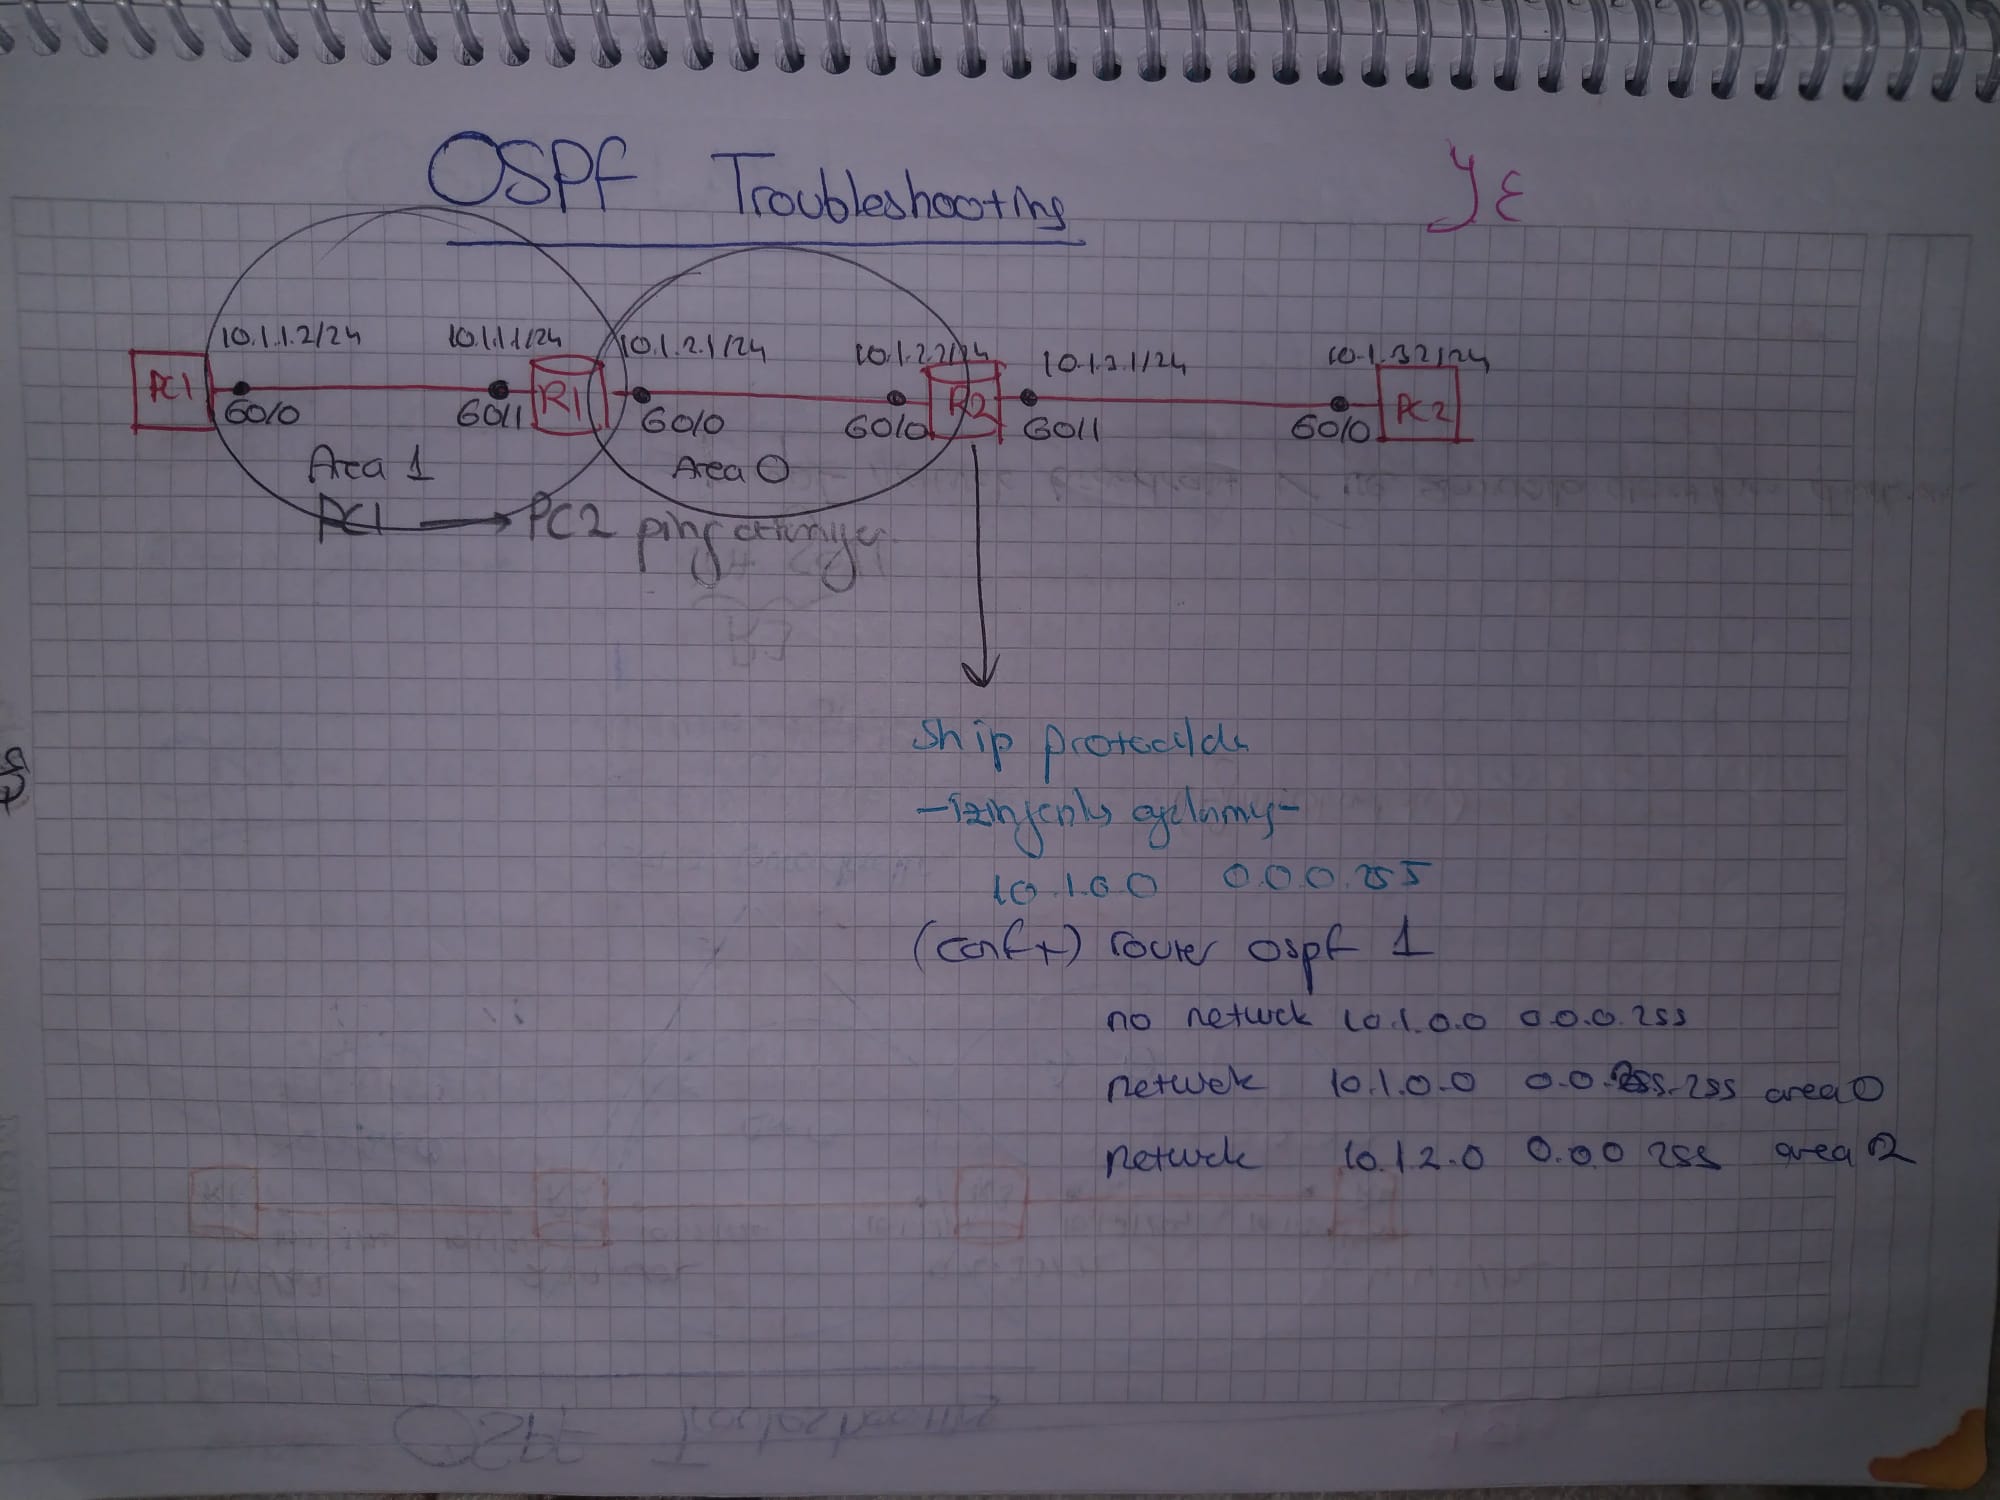 OSPF Troubleshooting
YE
10.1.1.2/24 10.1.1.1/24 10.1.2.1/24 10.1.2.2/24 10.1.3.1/24 10.1.3.2/24
PC1 R1 R2 PC2
G0/0 G0/1 G0/0 G0/0 G0/1 G0/0
Area 1 Area 0
PC1 → PC2 ping atmıyor
Sh ip protocolda
10.1.0.0 0.0.0.255
(conf t) router ospf 1
no network 10.1.0.0 0.0.0.255
network 10.1.0.0 0.0.255.255 area 0
network 10.1.2.0 0.0.0 255 area 2